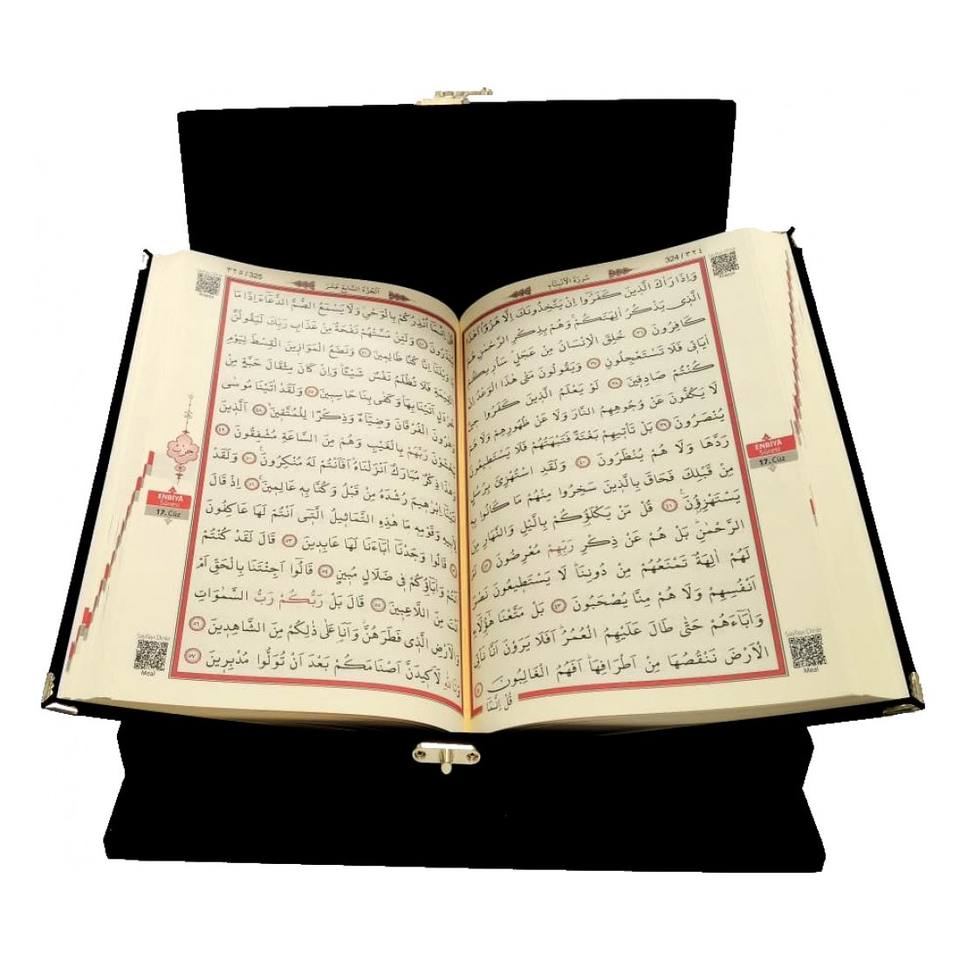 ٣٢٤ / 324
سُورَةُ الْاَنْبِيَاءِ
وَاِذَا رَاٰكَ الَّذ۪ينَ كَفَرُٓوا اِنْ يَتَّخِذُونَكَ اِلَّا هُزُوًاۜ اَهٰذَا
الَّذ۪ي يَذْكُرُ اٰلِهَتَكُمْۚ وَهُمْ بِذِكْرِ الرَّحْمٰنِ هُمْ
كَافِرُونَ ٣٦ خُلِقَ الْاِنْسَانُ مِنْ عَجَلٍۜ سَاُر۪يكُمْ
اٰيَات۪ي فَلَا تَسْتَعْجِلُونِ ٣٧ وَيَقُولُونَ مَتٰى هٰذَا الْوَعْدُ اِنْ
كُنْتُمْ صَادِق۪ينَ ٣٨ لَوْ يَعْلَمُ الَّذ۪ينَ كَفَرُوا ح۪ينَ
لَا يَكُفُّونَ عَنْ وُجُوهِهِمُ النَّارَ وَلَا عَنْ ظُهُورِهِمْ وَلَا هُمْ
يُنْصَرُونَ ٣٩ بَلْ تَأْت۪يهِمْ بَغْتَةً فَتَبْهَتُهُمْ فَلَا يَسْتَط۪يعُونَ
رَدَّهَا وَلَا هُمْ يُنْظَرُونَ ٤٠ وَلَقَدِ اسْتُهْزِئَ بِرُسُلٍ
مِنْ قَبْلِكَ فَحَاقَ بِالَّذ۪ينَ سَخِرُوا مِنْهُمْ مَا كَانُوا بِه۪
يَسْتَهْزِؤُ۫نَ۟ ٤١ قُلْ مَنْ يَكْلَؤُ۬كُمْ بِالَّيْلِ وَالنَّهَارِ مِنَ
الرَّحْمٰنِۜ بَلْ هُمْ عَنْ ذِكْرِ رَبِّهِمْ مُعْرِضُونَ ٤٢
لَهُمْ اٰلِهَةٌ تَمْنَعُهُمْ مِنْ دُونِنَاۜ لَا يَسْتَط۪يعُونَ نَصْرَ
اَنْفُسِهِمْ وَلَا هُمْ مِنَّا يُصْحَبُونَ ٤٣ بَلْ مَتَّعْنَا هٰٓؤُ۬لَٓاءِ
وَاٰبَٓاءَهُمْ حَتّٰى طَالَ عَلَيْهِمُ الْعُمُرُۜ اَفَلَا يَرَوْنَ اَنَّا نَأْتِي
الْاَرْضَ نَنْقُصُهَا مِنْ اَطْرَافِهَاۜ اَفَهُمُ الْغَالِبُونَ ٤٤
قُلْ اِنَّمَٓا
ENBİYA
Sûresi
17. Cüz
Sayfayı Dinle
Meal
٣٢٥ / 325
اَلْجُزْءُ السَّابِعَ عَشَرَ
قُلْ اِنَّمَٓا اُنْذِرُكُمْ بِالْوَحْيِۘ وَلَا يَسْمَعُ الصُّمُّ الدُّعَٓاءَ اِذَا مَا
يُنْذَرُونَ ٤٥ وَلَئِنْ مَسَّتْهُمْ نَفْحَةٌ مِنْ عَذَابِ رَبِّكَ لَيَقُولُنَّ
يَا وَيْلَنَٓا اِنَّا كُنَّا ظَالِم۪ينَ ٤٦ وَنَضَعُ الْمَوَاز۪ينَ الْقِسْطَ لِيَوْمِ
الْقِيٰمَةِ فَلَا تُظْلَمُ نَفْسٌ شَيْـًٔاۜ وَاِنْ كَانَ مِثْقَالَ حَبَّةٍ مِنْ
خَرْدَلٍ اَتَيْنَا بِهَاۜ وَكَفٰى بِنَا حَاسِب۪ينَ ٤٧ وَلَقَدْ اٰتَيْنَا مُوسٰى
وَهٰرُونَ الْفُرْقَانَ وَضِيَٓاءً وَذِكْرًا لِلْمُتَّق۪ينَۙ ٤٨ اَلَّذ۪ينَ
يَخْشَوْنَ رَبَّهُمْ بِالْغَيْبِ وَهُمْ مِنَ السَّاعَةِ مُشْفِقُونَ ٤٩
وَهٰذَا ذِكْرٌ مُبَارَكٌ اَنْزَلْنَاهُۜ اَفَاَنْتُمْ لَهُ مُنْكِرُونَ۟ ٥٠ وَلَقَدْ
اٰتَيْنَٓا اِبْرٰه۪يمَ رُشْدَهُ مِنْ قَبْلُ وَكُنَّا بِه۪ عَالِم۪ينَۚ ٥١ اِذْ قَالَ
لِاَب۪يهِ وَقَوْمِه۪ مَا هٰذِهِ التَّمَاث۪يلُ الَّت۪ٓي اَنْتُمْ لَهَا عَاكِفُونَ
٥٢ قَالُوا وَجَدْنَٓا اٰبَٓاءَنَا لَهَا عَابِد۪ينَ ٥٣ قَالَ لَقَدْ كُنْتُمْ
اَنْتُمْ وَاٰبَٓاؤُ۬كُمْ ف۪ي ضَلَالٍ مُب۪ينٍ ٥٤ قَالُٓوا اَجِئْتَنَا بِالْحَقِّ اَمْ
اَنْتَ مِنَ اللَّاعِب۪ينَ ٥٥ قَالَ بَلْ رَبُّكُمْ رَبُّ السَّمٰوَاتِ
وَالْاَرْضِ الَّذ۪ي فَطَرَهُنَّۘ وَاَنَا۬ عَلٰى ذٰلِكُمْ مِنَ الشَّاهِد۪ينَ ٥٦
وَتَاللّٰهِ لَاَك۪يدَنَّ اَصْنَامَكُمْ بَعْدَ اَنْ تُوَلُّوا مُدْبِر۪ينَ ٥٧
حزب
ENBİYA
Sûresi
17. Cüz
Sayfayı Dinle
Meal